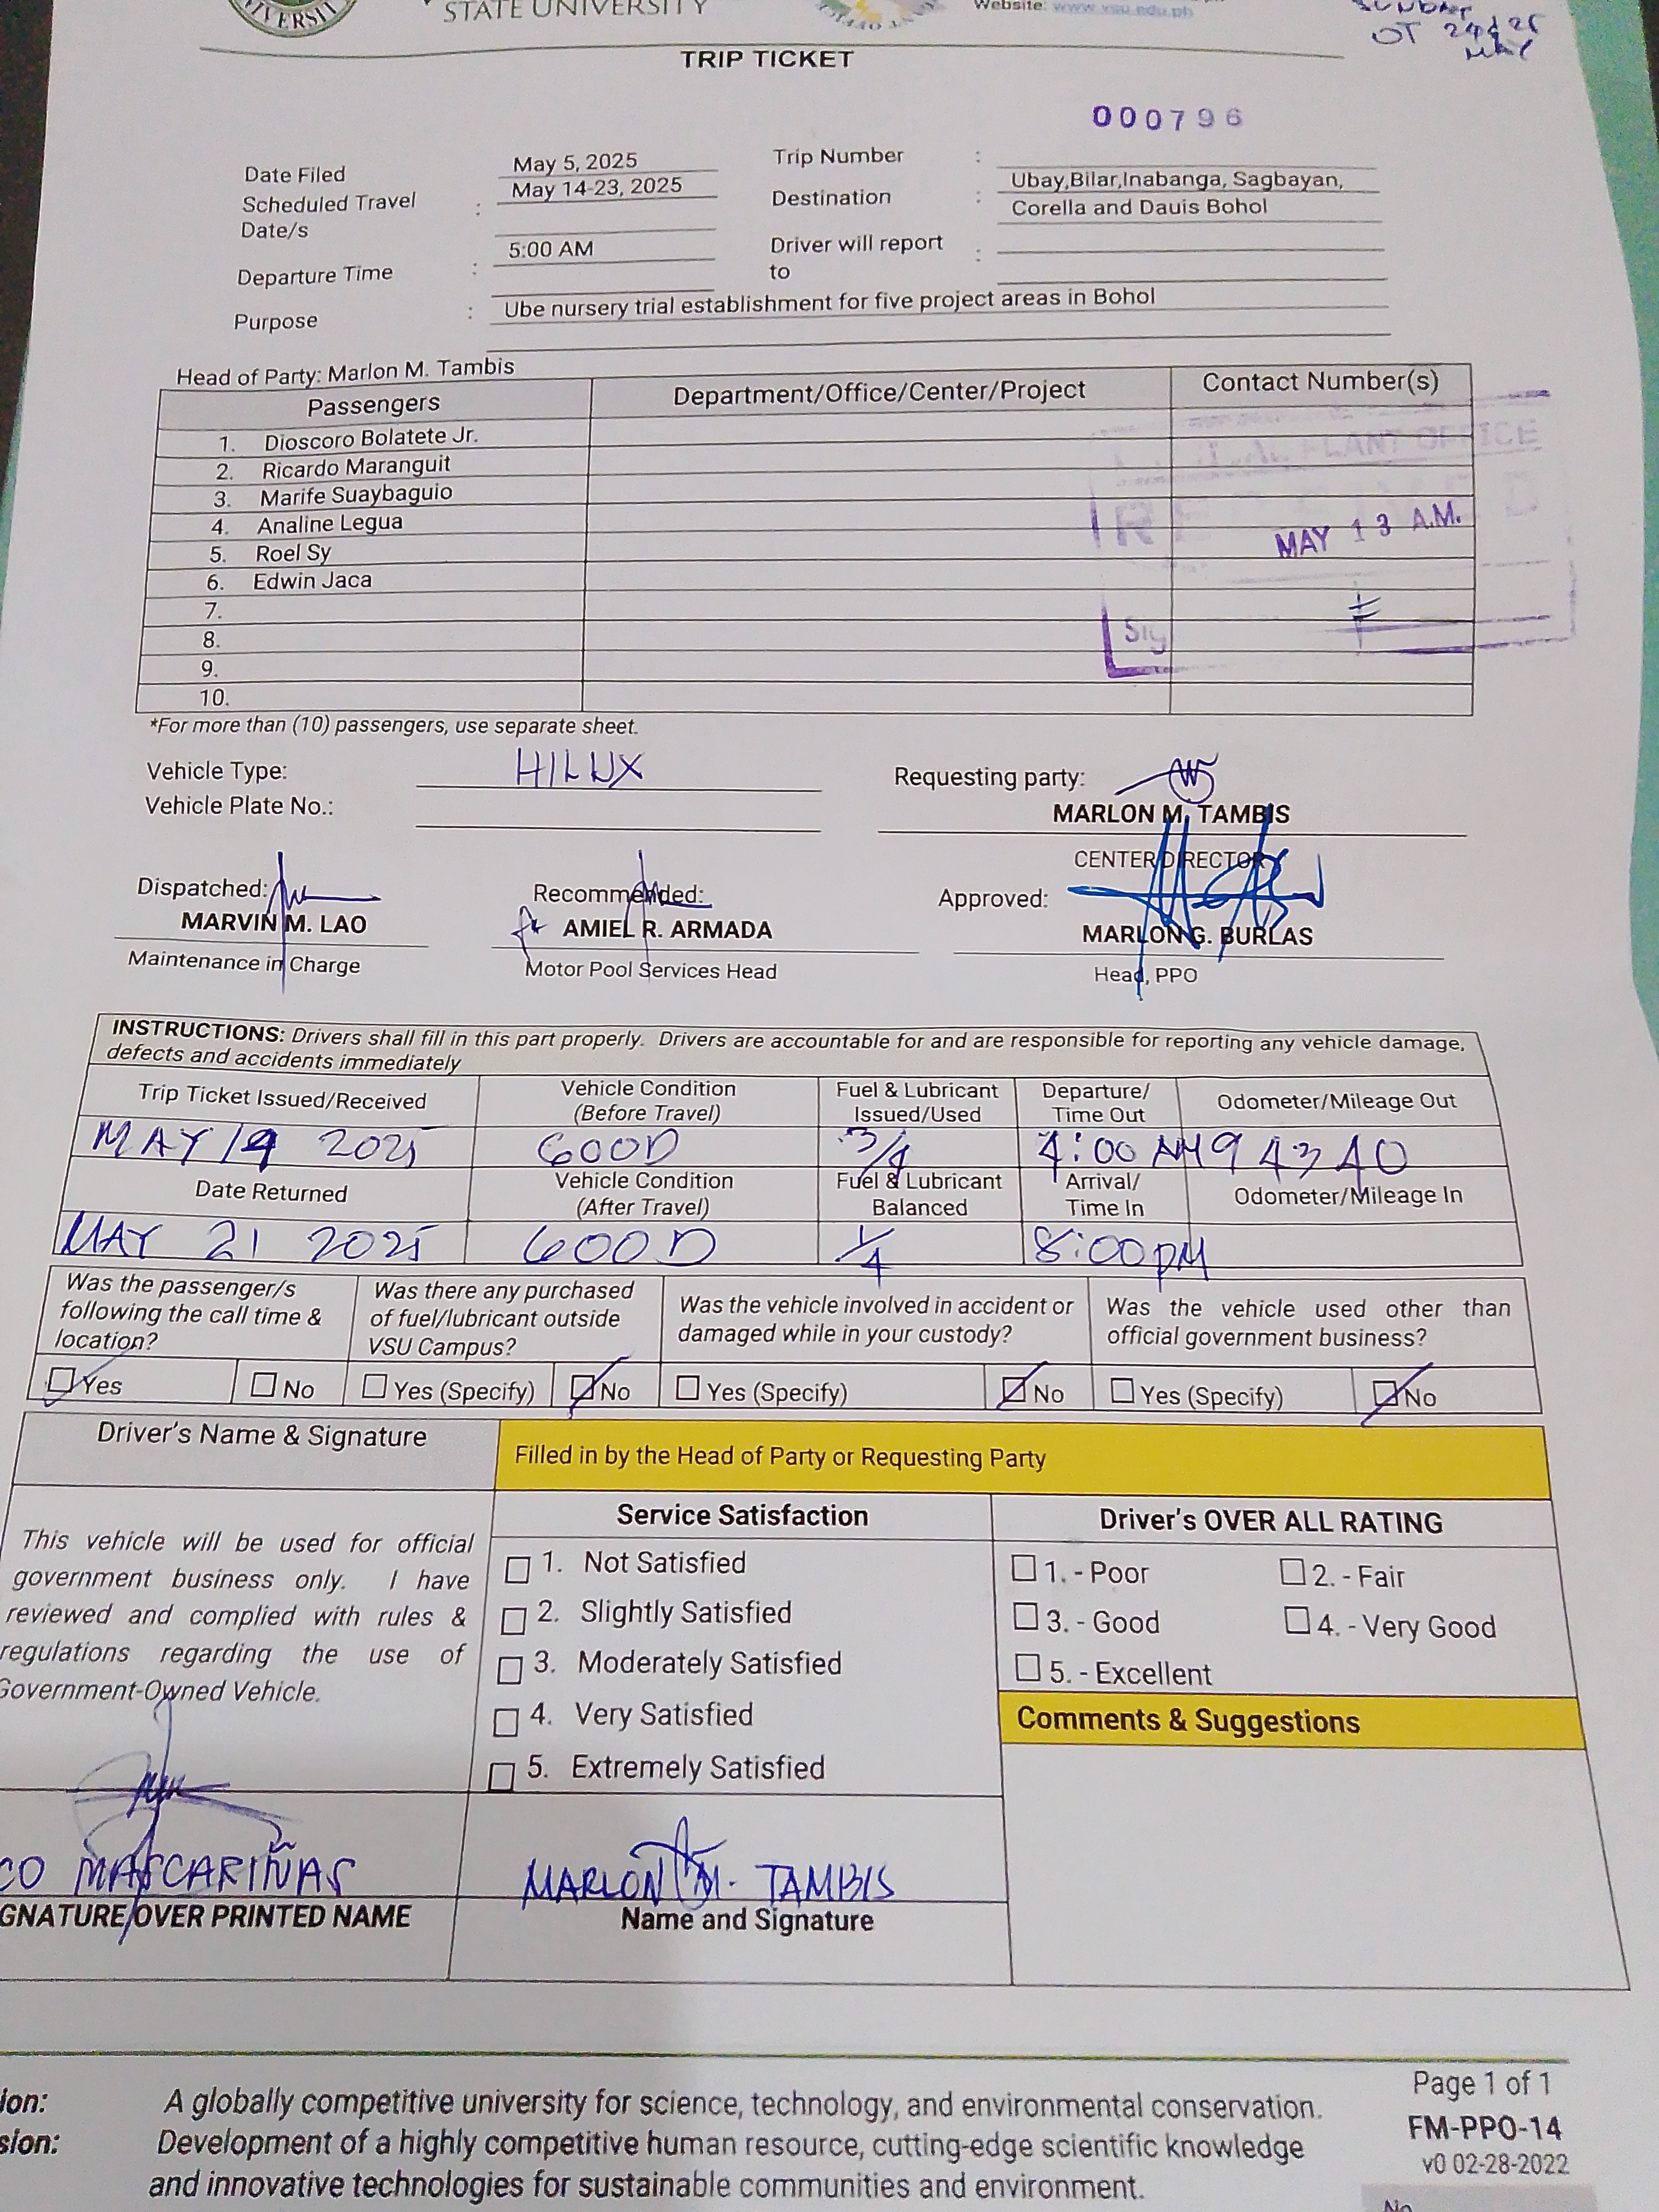 STATE UNIVERSITY
Website: www.vsu.edu.ph
OT 24 & 25
MAY
TRIP TICKET
000796
Date Filed May 5, 2025
Trip Number :
Scheduled Travel Date/s : May 14-23, 2025
Destination : Ubay,Bilar,Inabanga, Sagbayan,
Corella and Dauis Bohol
Departure Time : 5:00 AM
Driver will report to :
Purpose : Ube nursery trial establishment for five project areas in Bohol
Head of Party: Marlon M. Tambis
Passengers Department/Office/Center/Project Contact Number(s)
1. Dioscoro Bolatete Jr.
2. Ricardo Maranguit
3. Marife Suaybaguio
4. Analine Legua
5. Roel Sy
6. Edwin Jaca
7.
8.
9.
10.
PLANT OFFICE
MAY 13 A.M.
Sig
*For more than (10) passengers, use separate sheet.
Vehicle Type: HILUX
Requesting party:
Vehicle Plate No.:
MARLON M. TAMBIS
CENTER DIRECTOR
Dispatched: Recommended: Approved:
MARVIN M. LAO AMIEL R. ARMADA MARLON G. BURLAS
Maintenance in Charge Motor Pool Services Head Head, PPO
INSTRUCTIONS: Drivers shall fill in this part properly. Drivers are accountable for and are responsible for reporting any vehicle damage,
defects and accidents immediately
Trip Ticket Issued/Received Vehicle Condition (Before Travel) Fuel & Lubricant Issued/Used Departure/ Time Out Odometer/Mileage Out
MAY 14 2025 GOOD 3/4 4:00 AM 94340
Date Returned Vehicle Condition (After Travel) Fuel & Lubricant Balanced Arrival/ Time In Odometer/Mileage In
MAY 21 2025 GOOD 1/4 8:00 PM
Was the passenger/s following the call time & location? Was there any purchased of fuel/lubricant outside VSU Campus? Was the vehicle involved in accident or damaged while in your custody? Was the vehicle used other than official government business?
Yes No Yes (Specify) No Yes (Specify) No Yes (Specify) No
Driver's Name & Signature
Filled in by the Head of Party or Requesting Party
This vehicle will be used for official
government business only. I have
reviewed and complied with rules &
regulations regarding the use of
Government-Owned Vehicle.
Service Satisfaction
1. Not Satisfied
2. Slightly Satisfied
3. Moderately Satisfied
4. Very Satisfied
5. Extremely Satisfied
Driver's OVER ALL RATING
1. - Poor 2. - Fair
3. - Good 4. - Very Good
5. - Excellent
Comments & Suggestions
CO MASCARIÑAS
GNATURE OVER PRINTED NAME
MARLON M. TAMBIS
Name and Signature
ion: A globally competitive university for science, technology, and environmental conservation.
sion: Development of a highly competitive human resource, cutting-edge scientific knowledge
and innovative technologies for sustainable communities and environment.
Page 1 of 1
FM-PPO-14
v0 02-28-2022
No.